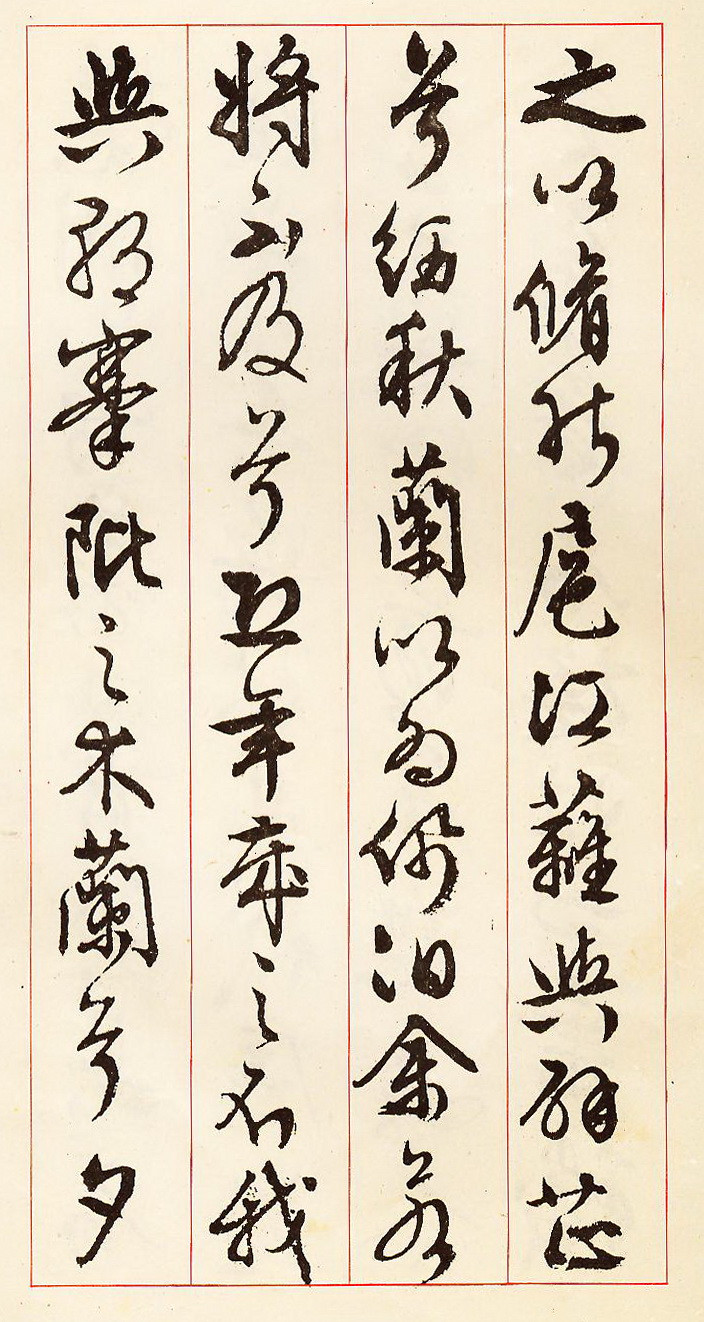 之以脩能扈江蘺與辟芷
兮紉秋蘭以為佩汩余若
将不及兮恐年歲之不我
與朝搴阰之木蘭兮夕